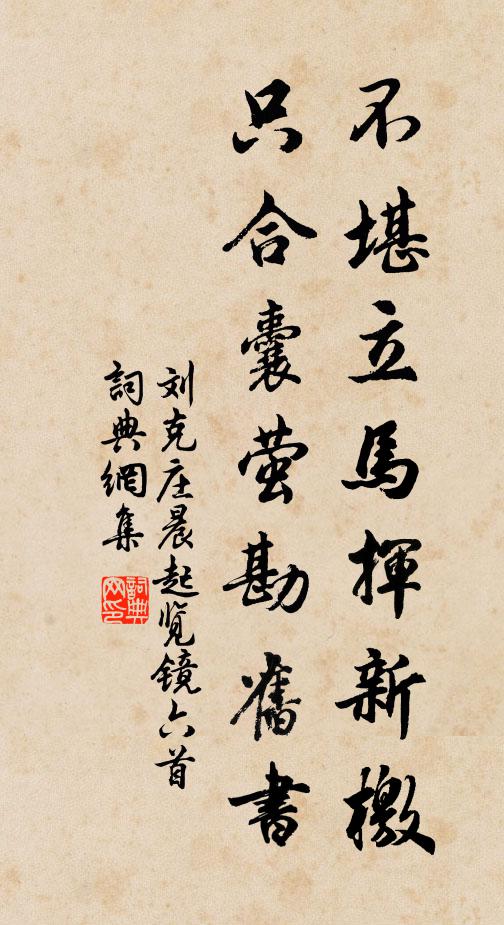 不堪立馬揮新檄
只合囊萤勘舊書
刘克庄晨起览镜六首
詞典網集
詞典网印